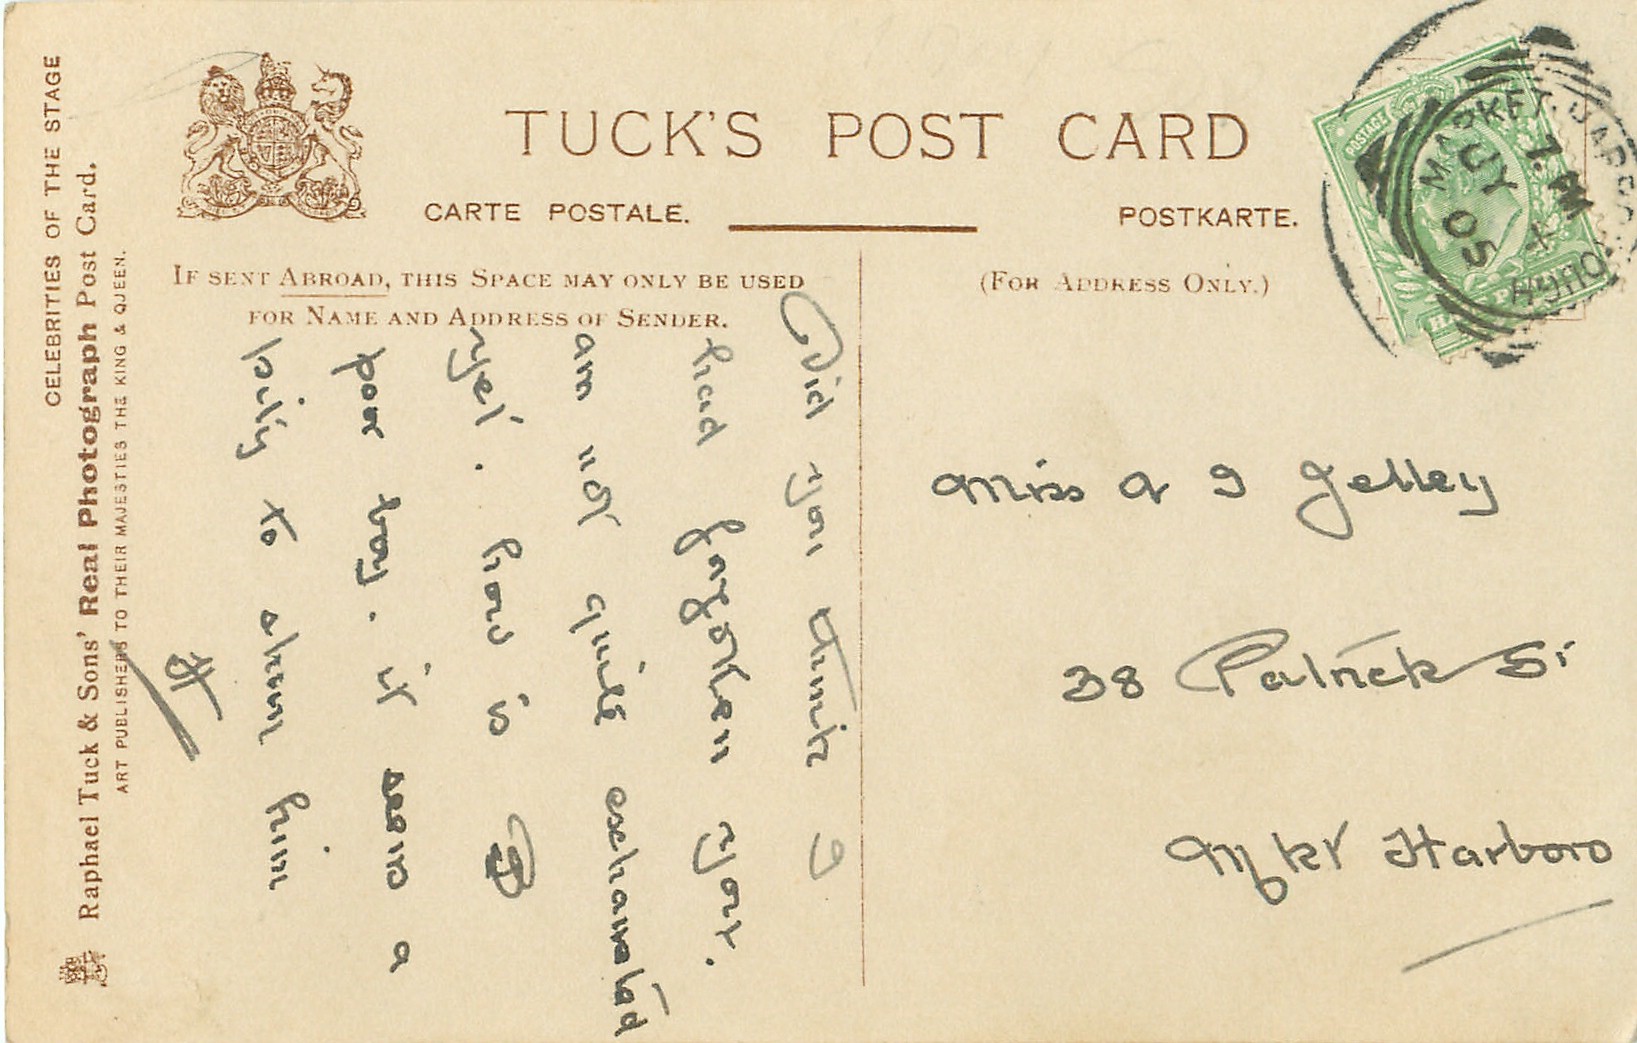 CELEBRITIES OF THE STAGE
Raphael Tuck & Sons' Real Photograph Post Card.
ART PUBLISHERS TO THEIR MAJESTIES THE KING & QUEEN.
TUCK'S POST CARD
CARTE POSTALE.
POSTKARTE.
IF SENT ABROAD, THIS SPACE MAY ONLY BE USED
FOR NAME AND ADDRESS OF SENDER.
(FOR ADDRESS ONLY.)
POSTAGE
MARKET HARBOROUGH
1. PM
JY
05
Did you think I
had forgotten you.
am not quite exhausted
yet. how is B
poor boy. it seems a
pity to him
H
Miss A I Jelley
38 Patrick St
Mkt Harboro